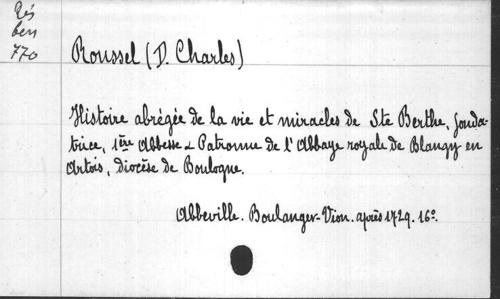 Rés
ben
770
Roussel (D. Charles)
Histoire abrégée de la vie et miracles de Ste Berthe, fonda-
trice, 1ère Abbesse & Patronne de l'Abbaye royale de Blangy en
Artois, diocèse de Boulogne.
Abbeville. Boulanger-Vion. après 1729. 16º.